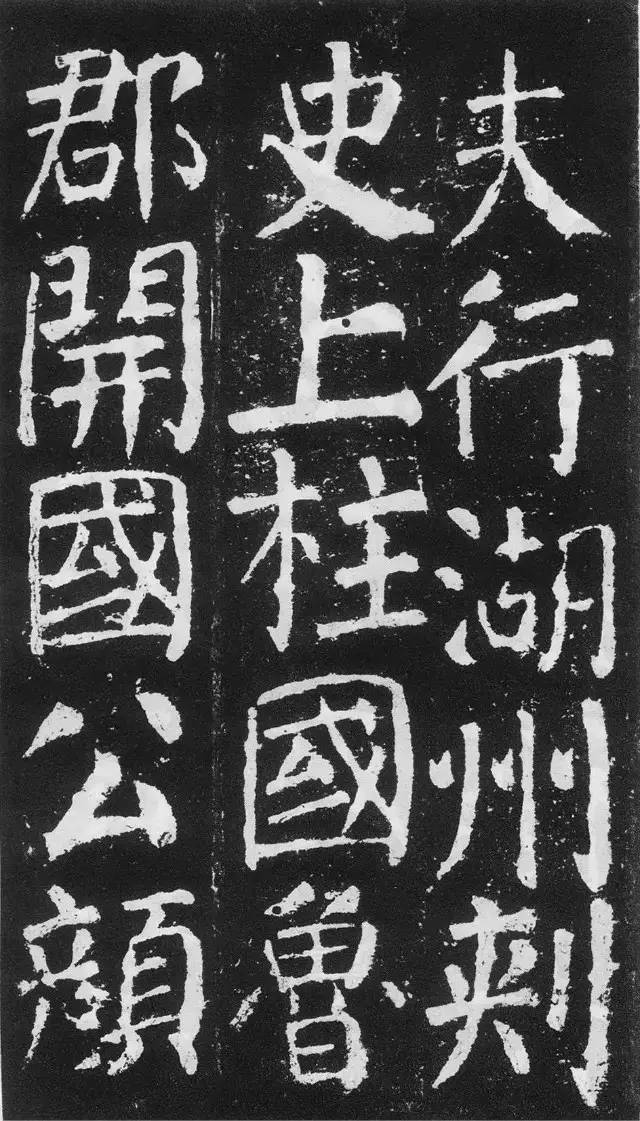 夫行湖州刺
史上柱國魯
郡開國公顏